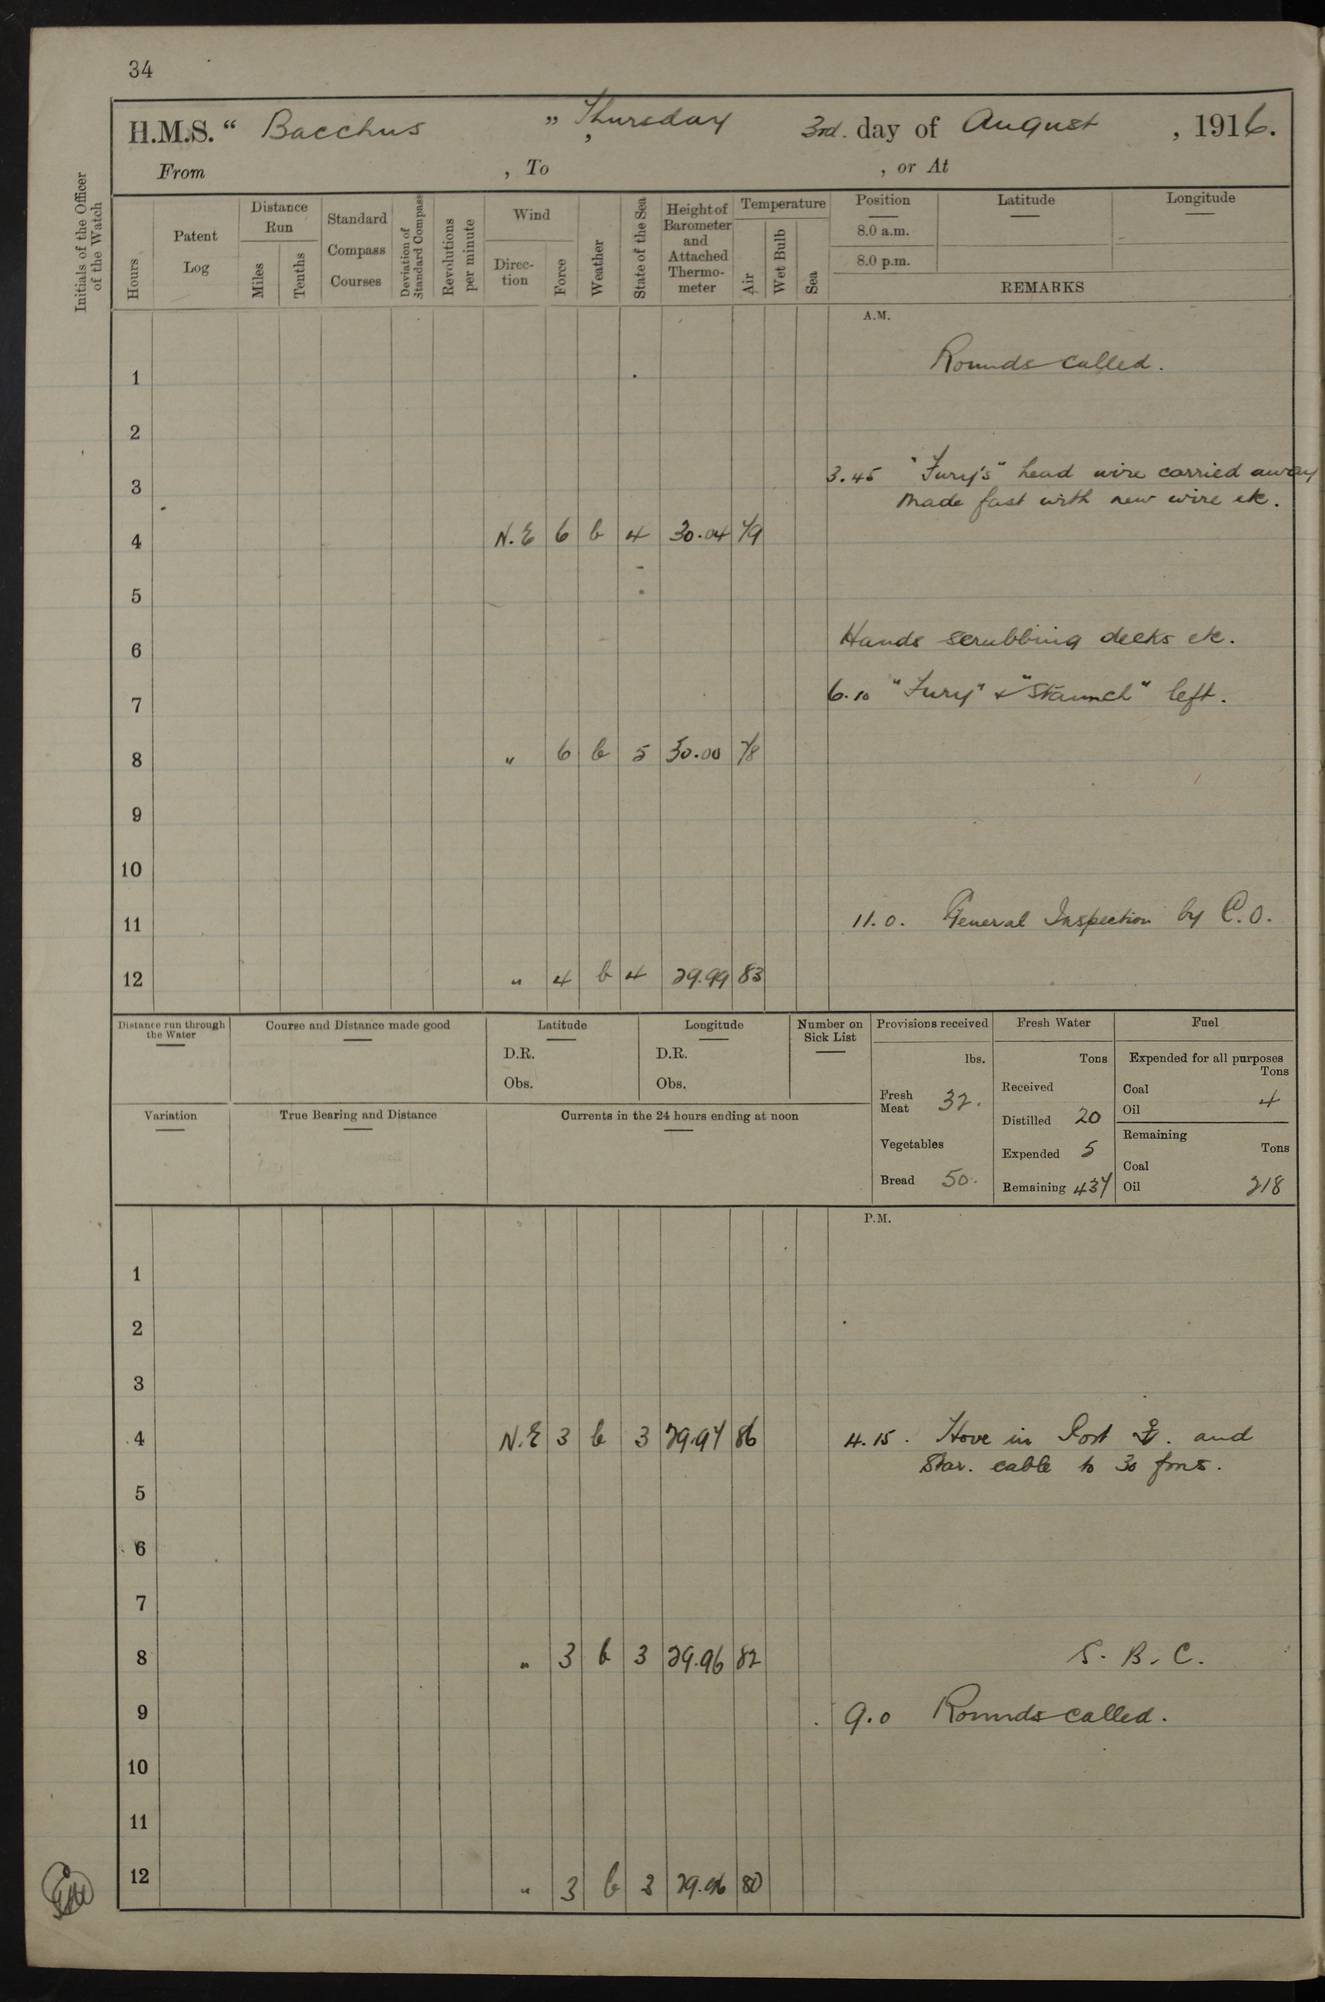 34
H.M.S. “ Bacchus ” Thursday , 3rd. day of August , 1916.
From , To , or At
Initials of the Officer of the Watch
Hours
Patent Log
Distance Run
Miles
Tenths
Standard Compass Courses
Deviation of Standard Compass
Revolutions per minute
Wind
Direction
Force
Weather
State of the Sea
Height of Barometer and Attached Thermometer
Temperature
Air
Wet Bulb
Sea
Position
8.0 a.m.
8.0 p.m.
Latitude
Longitude
REMARKS
A.M.
Rounds called.
1
2
3.45 "Fury's" head wire carried away
3
made fast with new wire etc.
4 N.E 6 b 4 30.04 79
5
Hands scrubbing decks etc.
6
6.10 "Fury" & "Staunch" left.
7
8 " 6 b 5 30.00 78
9
10
11 11.0. General Inspection by C.O.
12 " 4 b 4 29.99 83
Distance run through the Water
Course and Distance made good
Latitude
D.R.
Obs.
Longitude
D.R.
Obs.
Number on Sick List
Provisions received
lbs.
Fresh Meat 32.
Vegetables
Bread 50.
Fresh Water
Tons
Received
Distilled 20
Expended 5
Remaining 437
Fuel
Expended for all purposes
Tons
Coal
Oil 4
Remaining
Tons
Coal
Oil 218
Variation
True Bearing and Distance
Currents in the 24 hours ending at noon
P.M.
1
2
3
4 N.E 3 b 3 29.97 86 4.15. Hove in Port and
Star. cable to 30 fms.
5
6
7
8 " 3 b 3 29.96 82 S. B. C.
9 9.0 Rounds called.
10
11
12 " 3 b 3 29.96 80